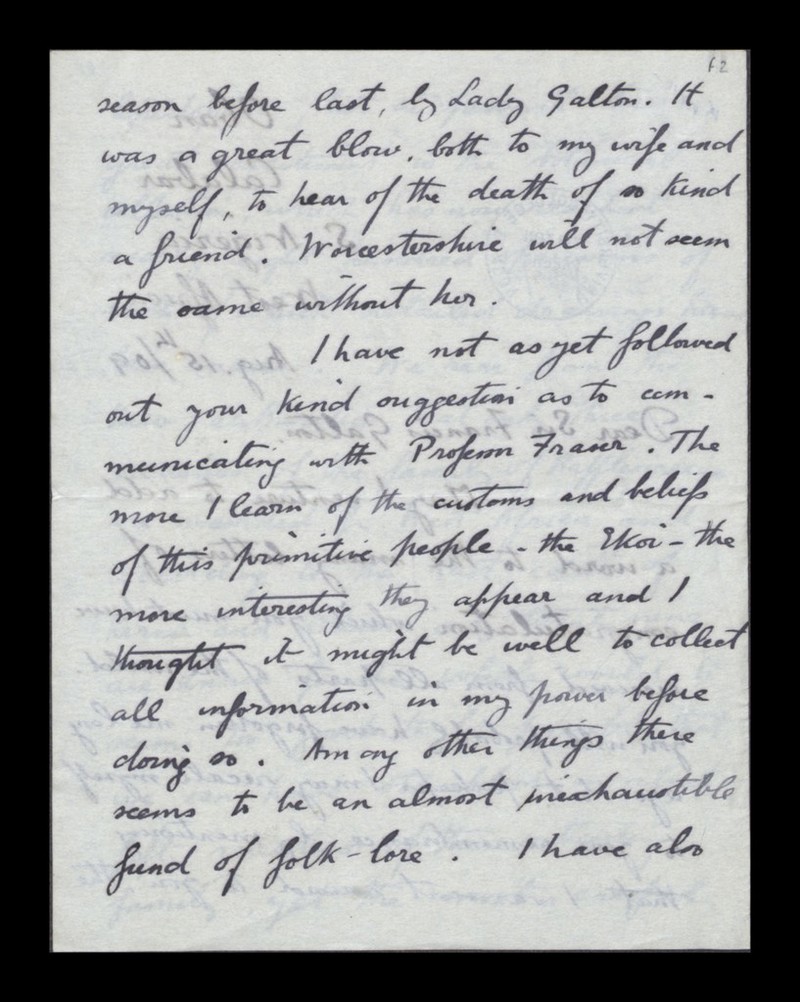 62
season before last, by Lady Galton. It
was a great blow, both to my wife and
myself, to hear of the death of so kind
a friend. Worcestershire will not seem
the same without her.
I have not as yet followed
out your kind suggestion as to com-
municating with Professor Frazer. The
more I learn of the customs and beliefs
of this primitive people - the Ekoi - the
more interesting they appear and I
thought it might be well to collect
all information in my power before
doing so. Among other things there
seems to be an almost inexhaustible
fund of folk-lore. I have also